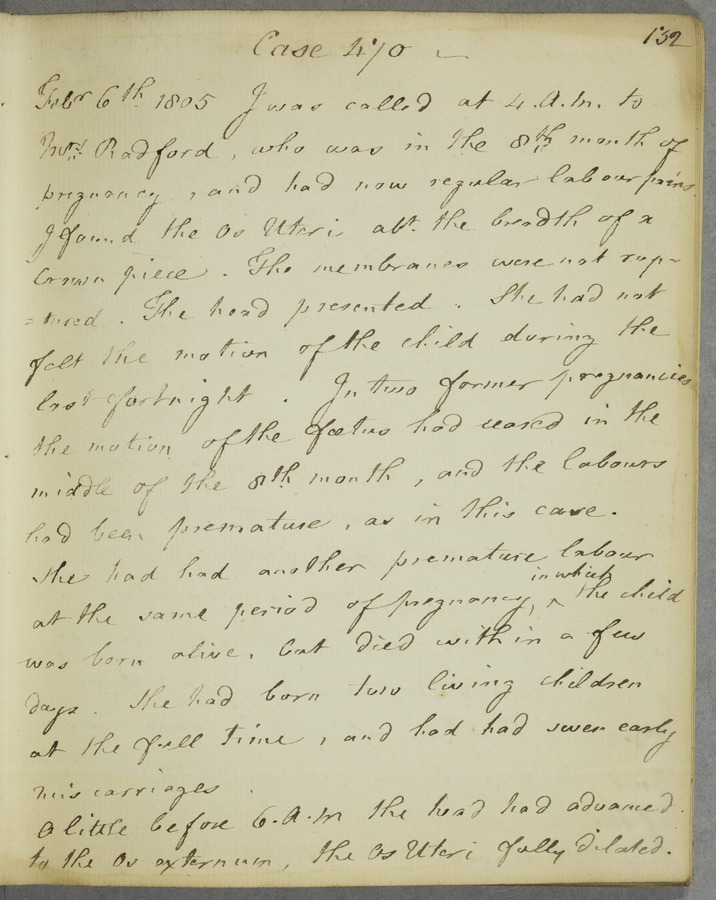 132
Case 470
Febr 6th 1805 I was called at 4. A.M. to
Mrs Radford, who was in the 8th month of
pregnancy, and had now regular labour pains.
I found the Os Uteri abt. the breadth of a
Crown piece. The membranes were not rup=
=tured. The head presented. She had not
felt the motion of the child during the
last fortnight. In two former pregnancies
the motion of the foetus had ceased in the
middle of the 8th month, and the labours
had been premature, as in this case.
She had had another premature labour
at the same period of pregnancy, ^ in which the child
was born alive, but died within a few
days. She had born two living children
at the full time, and had had seven early
miscarriages.
A little before 6. A.M the head had advanced
to the Os externum, the Os Uteri fully dilated.